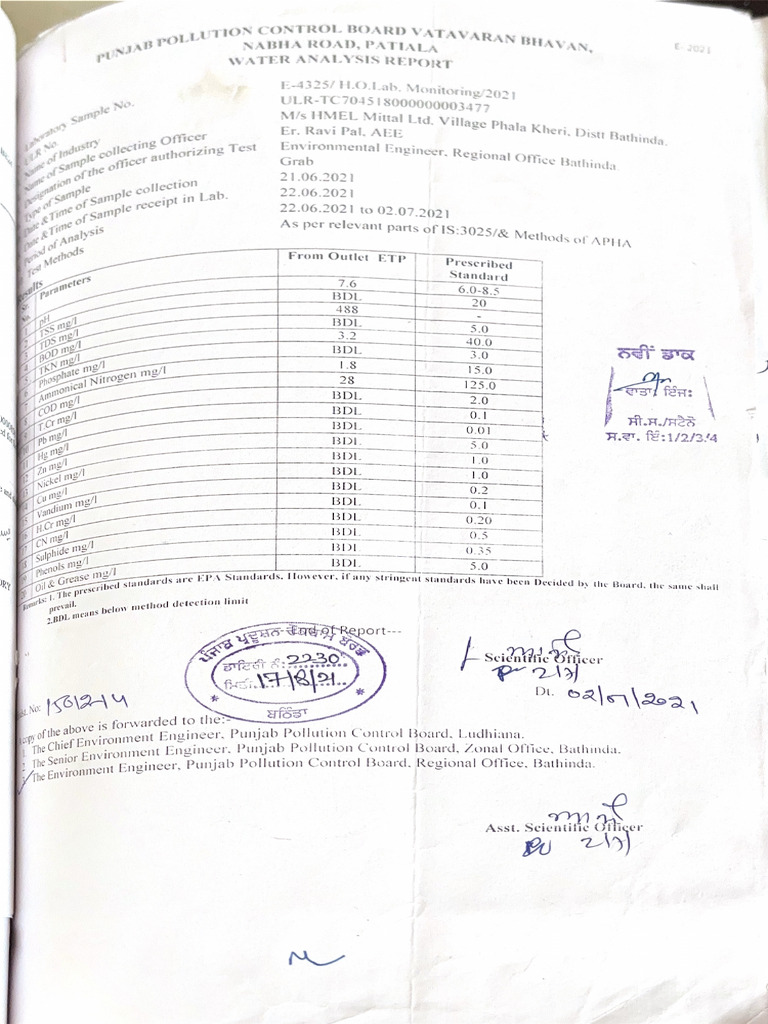 E- 2021
PUNJAB POLLUTION CONTROL BOARD VATAVARAN BHAVAN,
NABHA ROAD, PATIALA
WATER ANALYSIS REPORT
Laboratory Sample No. E-4325/ H.O.Lab. Monitoring/2021
ULR No. ULR-TC704518000000003477
Name of Industry M/s HMEL Mittal Ltd, Village Phala Kheri, Distt Bathinda.
Name of Sample collecting Officer Er. Ravi Pal, AEE
Designation of the officer authorizing Test Environmental Engineer, Regional Office Bathinda.
Type of Sample Grab
Date &Time of Sample collection 21.06.2021
Date &Time of Sample receipt in Lab. 22.06.2021
Period of Analysis 22.06.2021 to 02.07.2021
Test Methods As per relevant parts of IS:3025/& Methods of APHA
Results
Sr. No. Parameters From Outlet ETP Prescribed Standard
pH 7.6 6.0-8.5
TSS mg/l BDL 20
TDS mg/l 488 -
BOD mg/l BDL 5.0
TKN mg/l 3.2 40.0
Phosphate mg/l BDL 3.0
Ammonical Nitrogen mg/l 1.8 15.0
COD mg/l 28 125.0
T.Cr mg/l BDL 2.0
Pb mg/l BDL 0.1
Hg mg/l BDL 0.01
Zn mg/l BDL 5.0
Nickel mg/l BDL 1.0
Cu mg/l BDL 1.0
Vandium mg/l BDL 0.2
H.Cr mg/l BDL 0.1
CN mg/l BDL 0.20
Sulphide mg/l BDL 0.5
Phenols mg/l BDL 0.35
20 Oil & Grease mg/l BDL 5.0
ਨਵੀਂ ਡਾਕ
ਵਾਤਾ: ਇੰਜ:
ਸੀ.ਸ./ਸਟੈਨੋ
ਸ.ਵਾ. ਇੰ:1/2/3/4
Remarks: 1. The prescribed standards are EPA Standards. However, if any stringent standards have been Decided by the Board, the same shall
prevail.
2.BDL means below method detection limit
End of Report---
ਪੰਜਾਬ ਪ੍ਰਦੂਸ਼ਣ ਕੰਟਰੋਲ ਬੋਰਡ
ਡਾਇਰੀ ਨੰ: 2230
ਮਿਤੀ 17/8/21
ਬਠਿੰਡਾ
Scientific Officer
Dt. 02/07/2021
No:
copy of the above is forwarded to the:-
1. The Chief Environment Engineer, Punjab Pollution Control Board, Ludhiana.
2. The Senior Environment Engineer, Punjab Pollution Control Board, Zonal Office, Bathinda.
3. The Environment Engineer, Punjab Pollution Control Board, Regional Office, Bathinda.
Asst. Scientific Officer